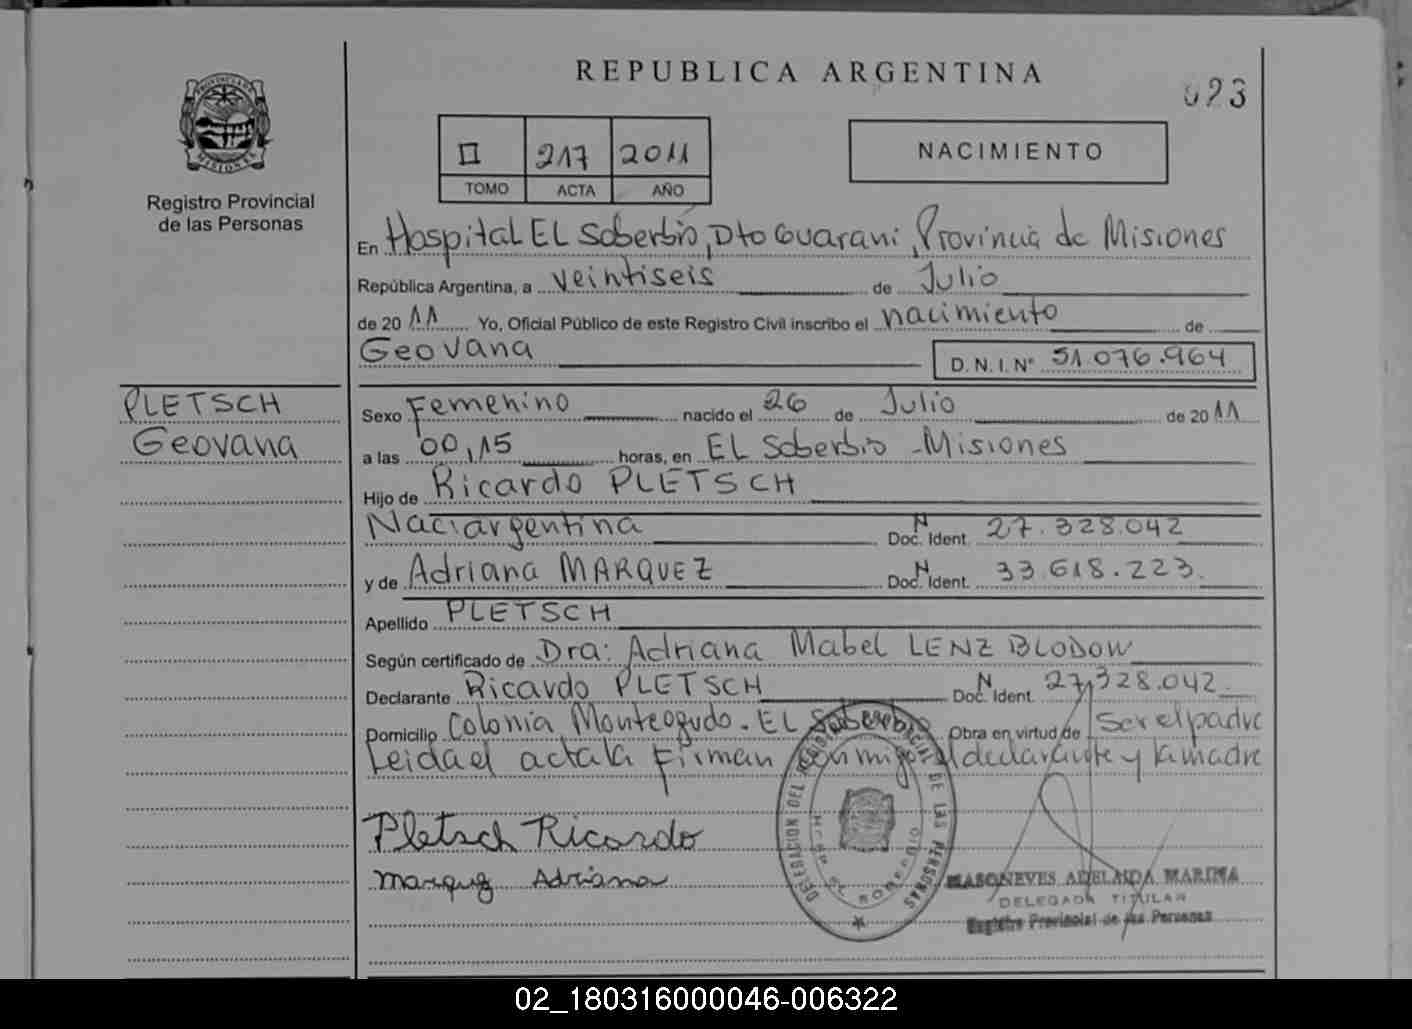 REPUBLICA ARGENTINA
023
PROVINCIA DE MISIONES
Registro Provincial
de las Personas
II 217 2011
TOMO ACTA AÑO
NACIMIENTO
En Hospital EL Soberbio, Dto Guarani, Provincia de Misiones
República Argentina, a veintiseis de Julio
de 2011 Yo, Oficial Público de este Registro Civil inscribo el nacimiento de
Geovana D.N.I. Nº 51.076.964
PLETSCH
Geovana
Sexo Femenino nacido el 26 de Julio de 2011
a las 00,15 horas, en EL Soberbio - Misiones
Hijo de Ricardo PLETSCH
Nac: argentina Doc. Ident. N 27.328.042
y de Adriana MARQUEZ Doc. Ident. N 33.618.223
Apellido PLETSCH
Según certificado de Dra: Adriana Mabel LENZ BLODOW
Declarante Ricardo PLETSCH Doc. Ident. N 27.328.042
Domicilio Colonia Monteagudo - EL Soberbio Obra en virtud de Ser el padre
Leida el acta la Firman conmigo el declarante y la madre
Pletsch Ricardo
Marquez Adriana
DELEGACION DEL REGISTRO PROVINCIAL DE LAS PERSONAS
HOSP. EL SOBERBIO
MASONEVES ADELAIDA MARINA
DELEGADA TITULAR
Registro Provincial de las Personas
02_180316000046-006322